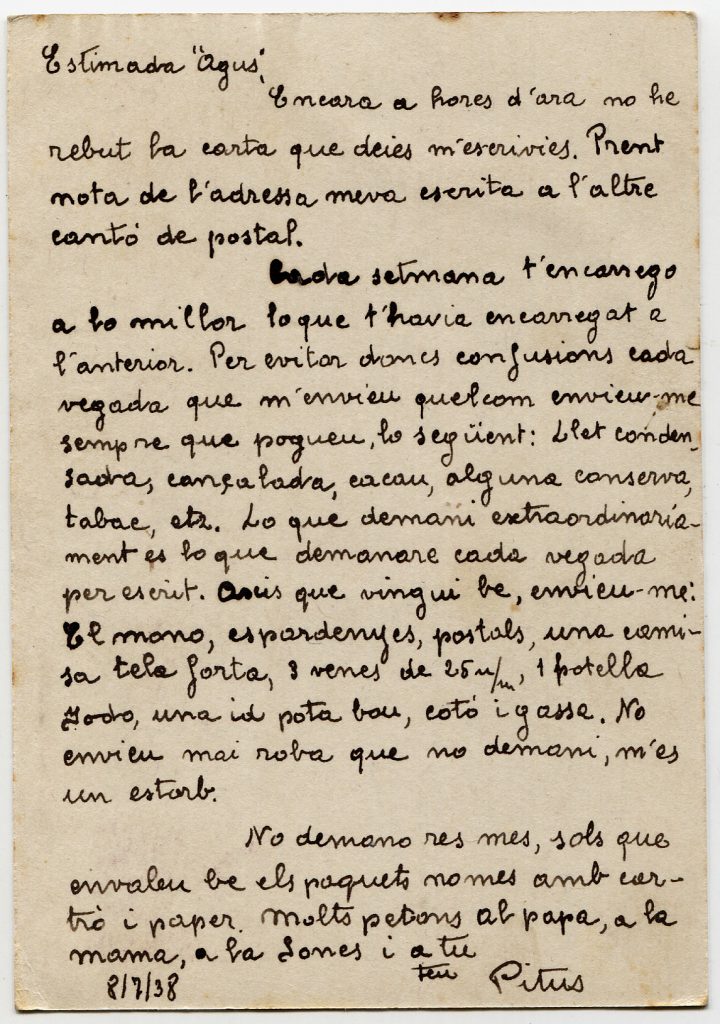 Estimada "Agus",
Encara a hores d'ara no he
rebut la carta que deies m'escrivies. Prent
nota de l'adressa meva escrita a l'altre
cantó de postal.
Cada setmana t'encarrego
a lo millor lo que t'havia encarregat a
l'anterior. Per evitar doncs confusions cada
vegada que m'envieu quelcom envieu-me
sempre que pogueu, lo següent: Llet conden-
sada, cançalada, cacau, alguna conserva,
tabac, etz. Lo que demani extraordinaria-
ment es lo que demanare cada vegada
per escrit. Axis que vingui be, envieu-me:
El mono, espardenyes, postals, una cami-
sa tela forta, 3 venes de 25 m/m, 1 potella
Iodo, una id pota bou, cotó i gassa. No
envieu mai roba que no demani, m'es
un estorb.
No demano res mes, sols que
envaleu be els paquets nomes amb car-
tró i paper. Molts petons al papa, a la
mama, a la Iones i a tu
teu
8/7/38 Pitus